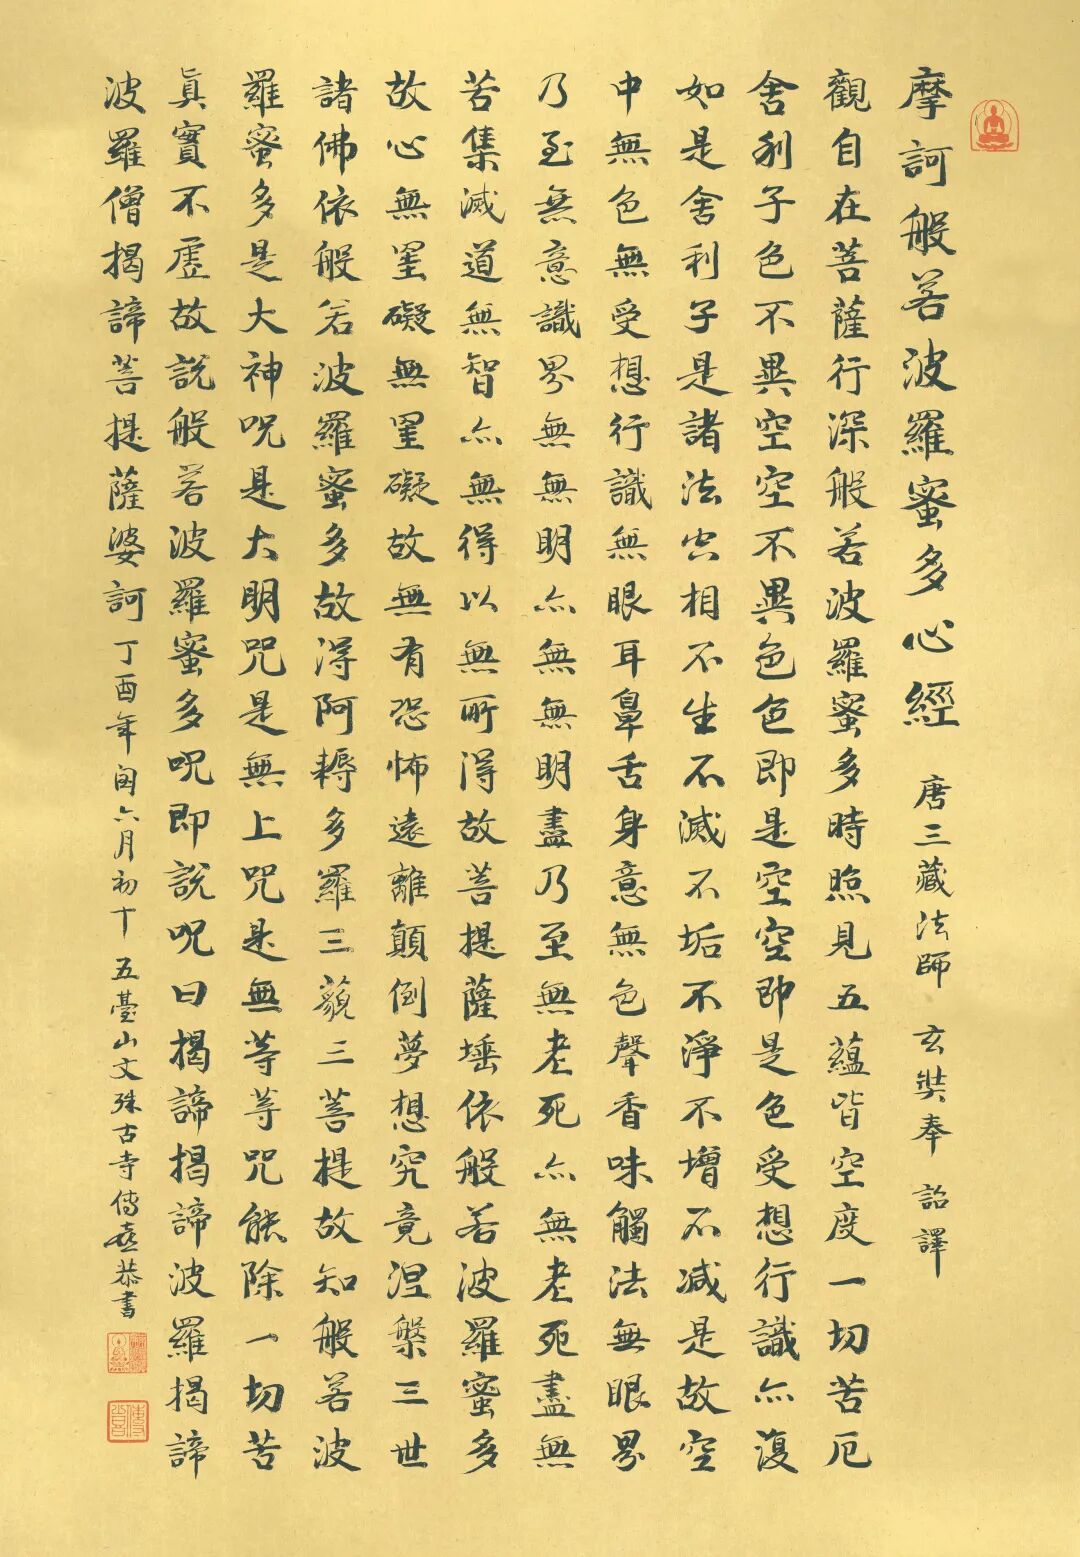 摩訶般若波羅蜜多心經 唐三藏法師 玄奘奉 詔譯
觀自在菩薩行深般若波羅蜜多時照見五蘊皆空度一切苦厄
舍利子色不異空空不異色色即是空空即是色受想行識亦復
如是舍利子是諸法空相不生不滅不垢不淨不增不減是故空
中無色無受想行識無眼耳鼻舌身意無色聲香味觸法無眼界
乃至無意識界無無明亦無無明盡乃至無老死亦無老死盡無
苦集滅道無智亦無得以無所得故菩提薩埵依般若波羅蜜多
故心無罣礙無罣礙故無有恐怖遠離顛倒夢想究竟涅槃三世
諸佛依般若波羅蜜多故得阿耨多羅三藐三菩提故知般若波
羅蜜多是大神咒是大明咒是無上咒是無等等咒能除一切苦
真實不虛故說般若波羅蜜多咒即說咒曰揭諦揭諦波羅揭諦
波羅僧揭諦菩提薩婆訶 丁酉年閏六月初十 五臺山文殊古寺傳喜恭書